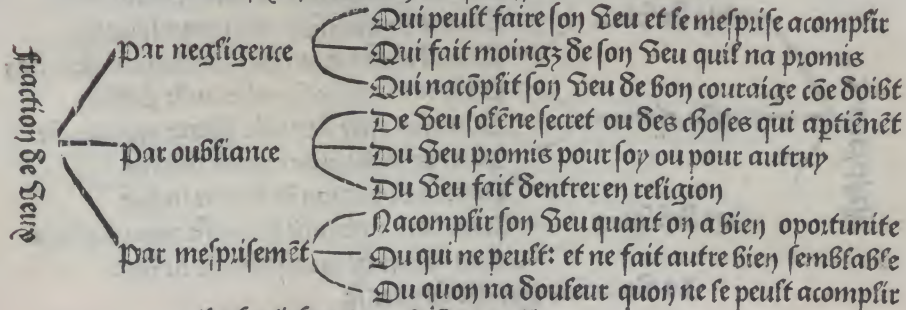 Fraction de veux
Par negligence
Qui peult faire son veu et le mesprise acomplir
Qui fait moingz de son veu quil na promis
Qui nacōplit son veu de bon couraige cōe doibt
Par oubliance
De veu solēne secret ou des choses qui aptiēnēt
Du veu promis pour soy ou pour autruy
Du veu fait dentrer en religion
Par mesprisemēt
Nacomplir son veu quant on a bien oportunite
Ou qui ne peult: et ne fait autre bien semblable
Ou quon na douleur quon ne le peult acomplir